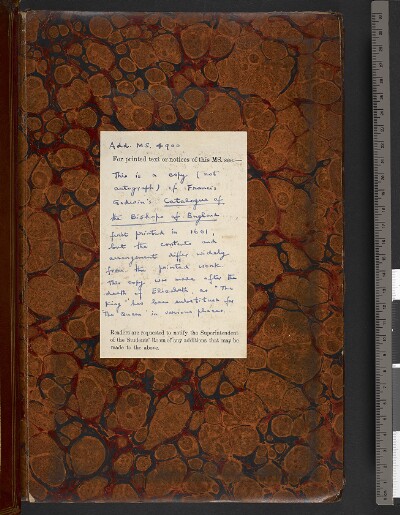 Add. MS. 4900
For printed text or notices of this MS. see:—
This is a copy (not
autograph) of Francis
Godwin's Catalogue of
the Bishops of England
first printed in 1601,
but the contents and
arrangement differ widely
from the printed work
This copy was made after the
death of Elizabeth as "the
King" has been substituted for
the "Queen" in various places.
Readers are requested to notify the Superintendent
of the Students' Room of any additions that may be
made to the above.